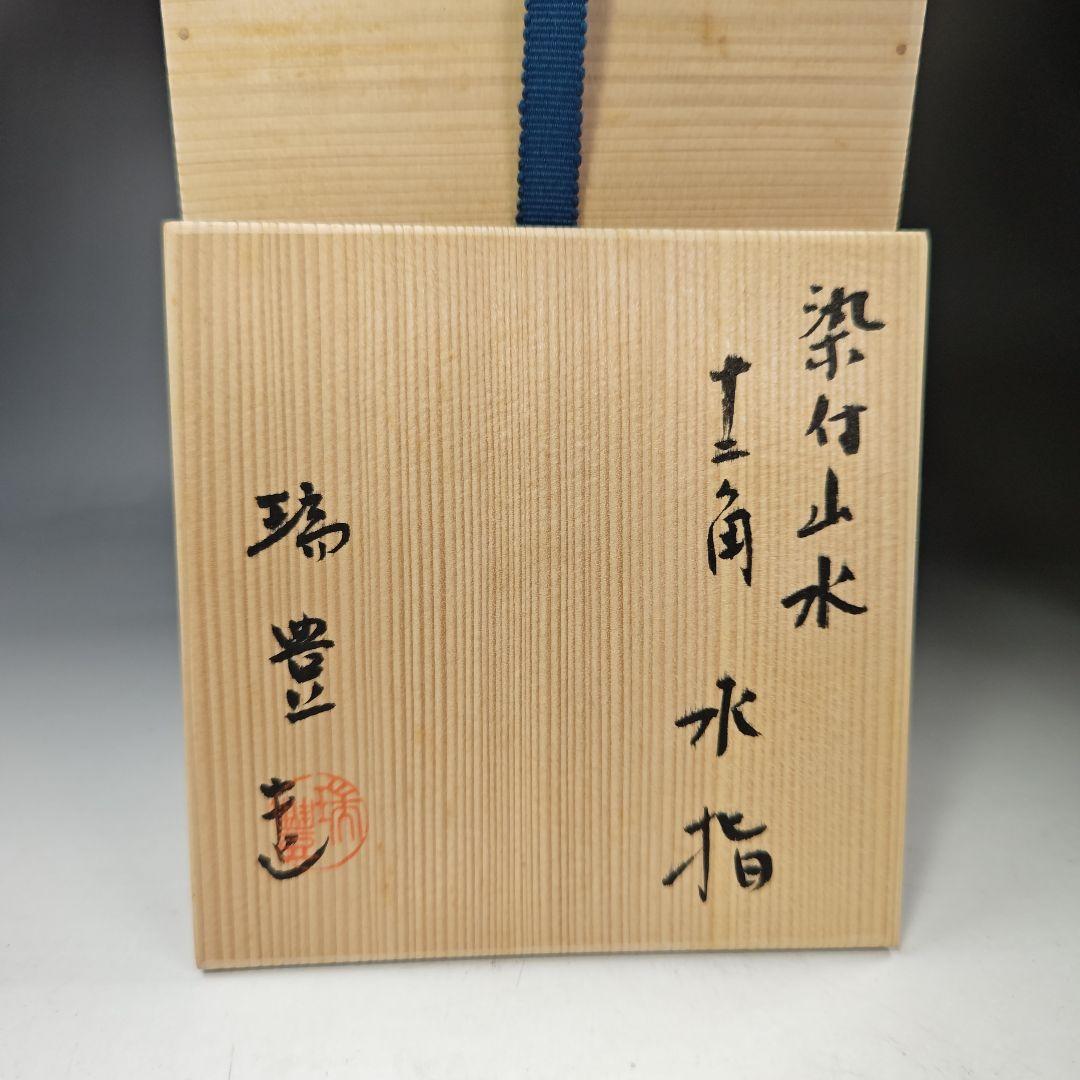 染付山水
十二角 水指
瑞豊造
瑞豊